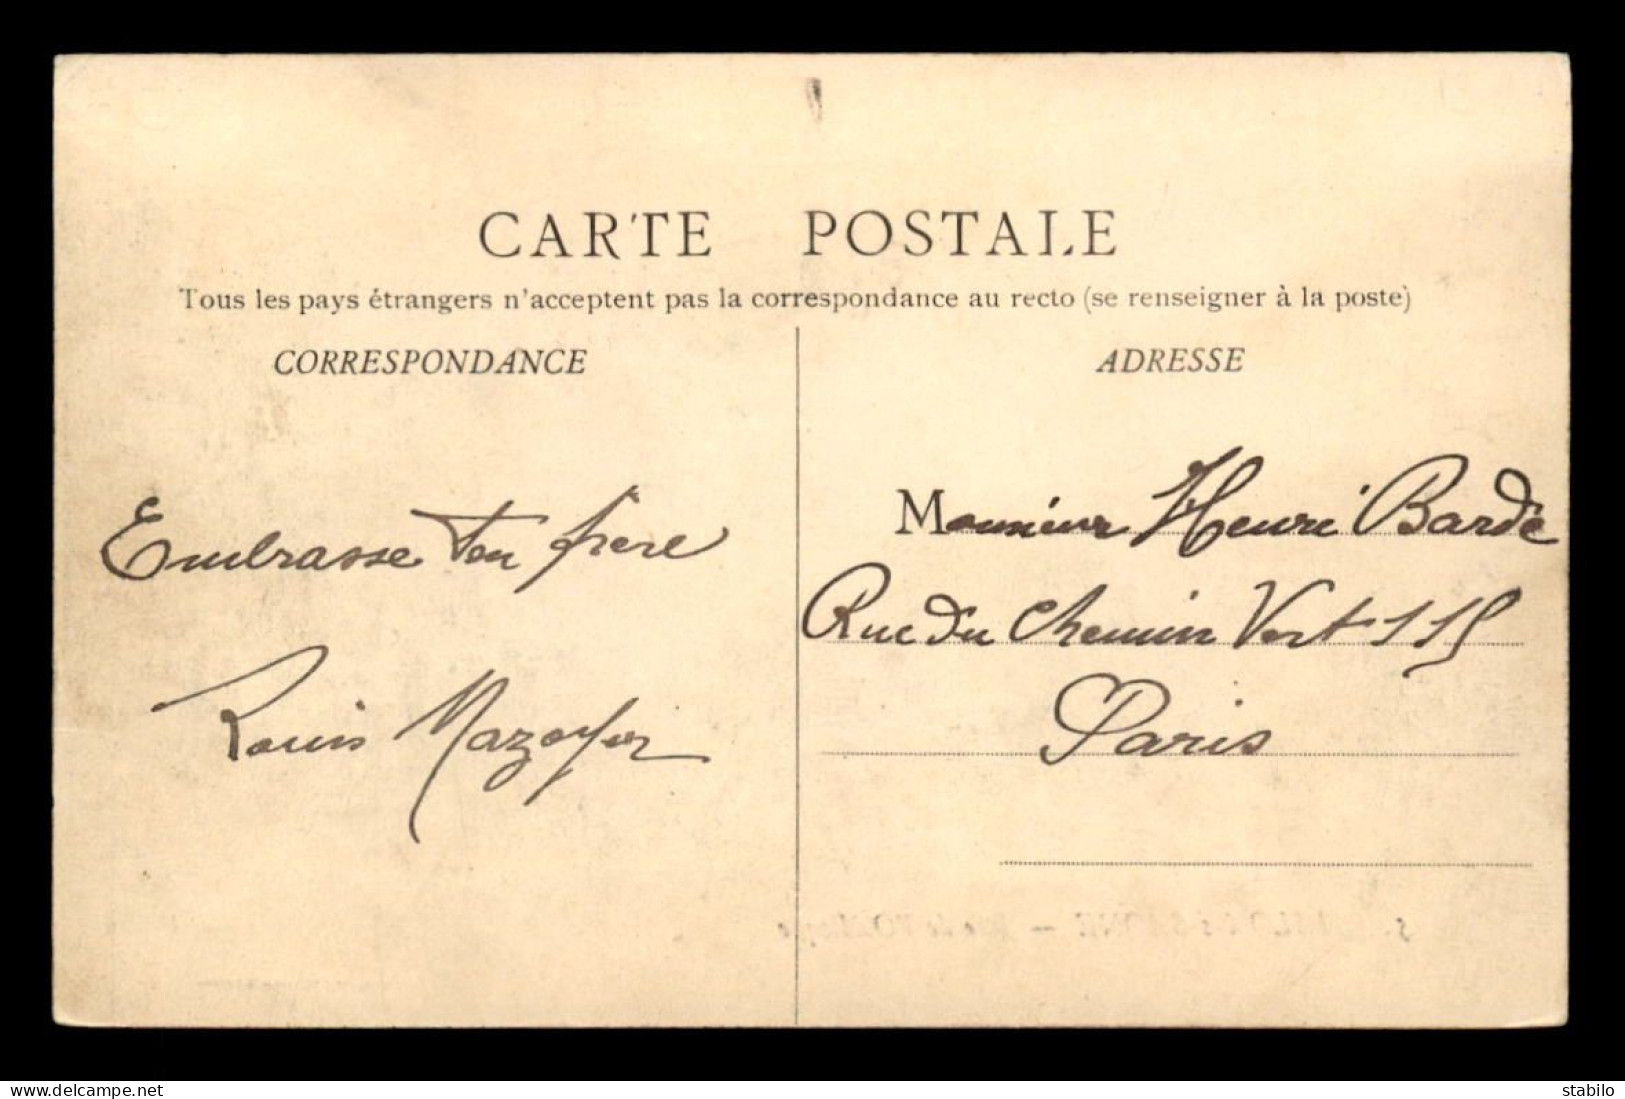 CARTE POSTALE
Tous les pays étrangers n'acceptent pas la correspondance au recto (se renseigner à la poste)
CORRESPONDANCE
ADRESSE
Embrasse ton frère
Louis Mazoyer
Monsieur Henri Bardé
Rue du Chemin Vert 115
Paris
www.delcampe.net
stabilo